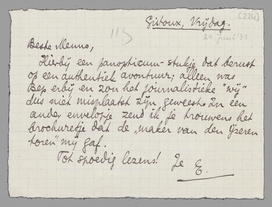 Gistoux, Vrijdag.
Beste Menno,
Hierbij een panopticum-stukje dat berust
op een authentiek avontuur; alleen was
Bep erbij en zou het journalistieke "wij"
dus niet misplaatst zijn geweest. In een
andre envelopje zend ik je trouwens het
brochuretje dat de "maker van den IJzeren
toren" mij gaf.
Tot spoedig lezens! Je E.